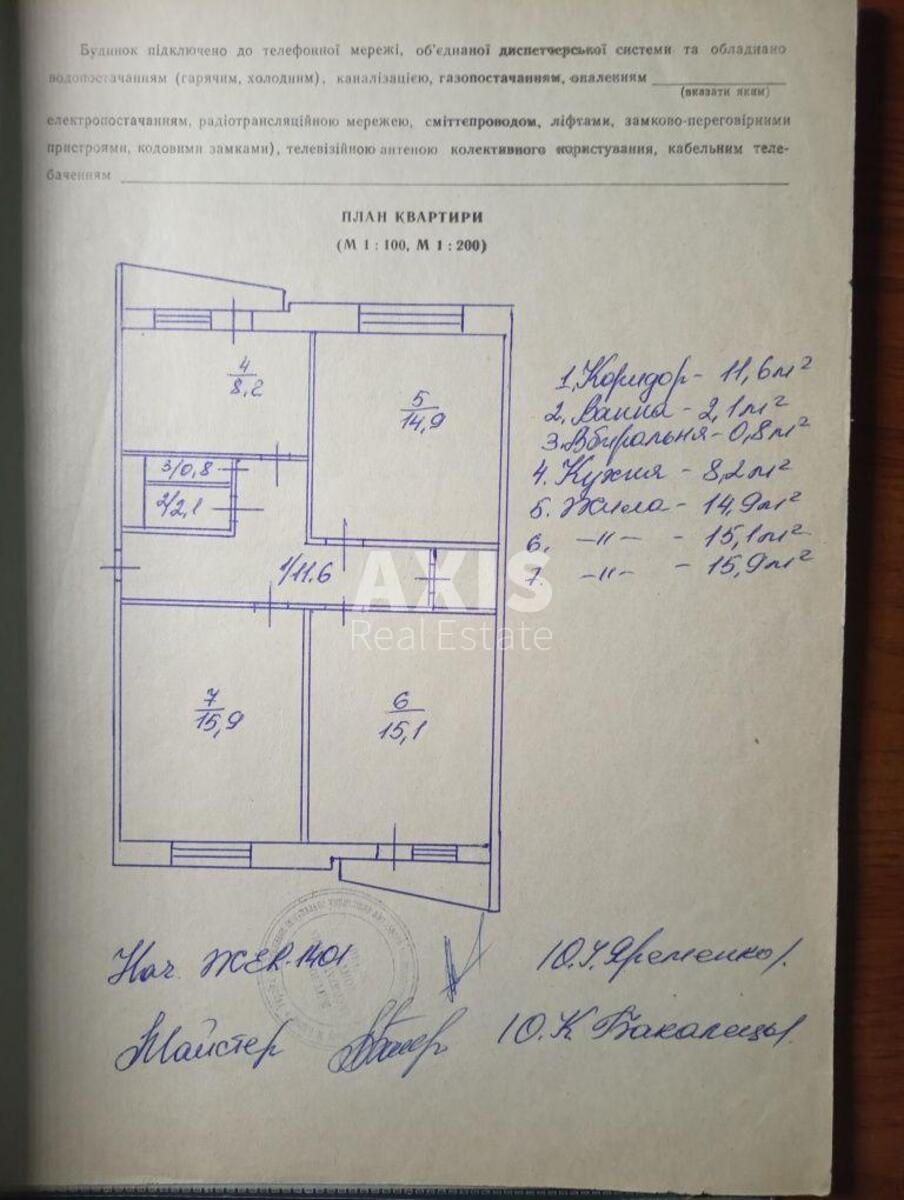 Будинок підключено до телефонної мережі, об'єднаної диспетчерської системи та обладнано
водопостачанням (гарячим, холодним), каналізацією, газопостачанням, опаленням
(вказати яким)
електропостачанням, радіотрансляційною мережею, сміттєпроводом, ліфтами, замково-переговірними
пристроями, кодовими замками), телевізійною антеною колективного користування, кабельним теле-
баченням
ПЛАН КВАРТИРИ
(М 1 : 100, М 1 : 200)
4
8,2
5
14,9
3/0,8
2/2,1
1/11.6
7
15,9
6
15,1
1. Коридор - 11,6м²
2. Ванна - 2,1м²
3. Вбиральня - 0,8м²
4. Кухня - 8,2м²
5. Жила - 14,9м²
6. -"- - 15,1м²
7. -"- - 15,9м²
AXIS
Real Estate
Нач. ЖЕК 1401
Майстер